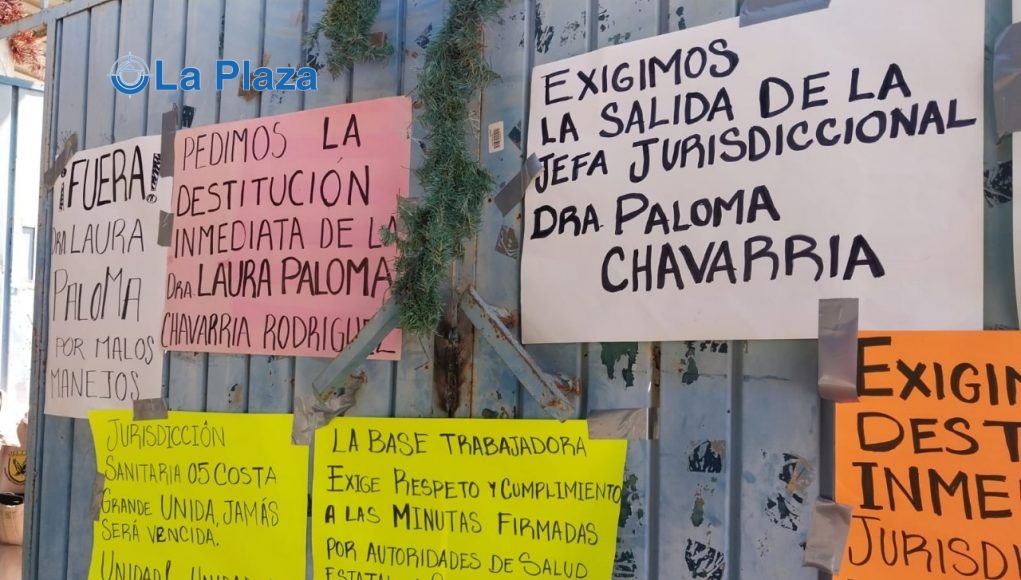 La Plaza
¡FUERA!
DRA. LAURA
PALOMA
POR MALOS
MANEJOS
PEDIMOS LA
DESTITUCIÓN
INMEDIATA DE LA
DRA. LAURA PALOMA
CHAVARRIA RODRIGUEZ
EXIGIMOS
LA SALIDA DE LA
JEFA JURISDICCIONAL
DRA. PALOMA
CHAVARRIA
JURISDICCIÓN
SANITARIA 05 COSTA
GRANDE UNIDA, JAMÁS
SERÁ VENCIDA.
UNIDAD!
LA BASE TRABAJADORA
EXIGE RESPETO Y CUMPLIMIENTO
A LAS MINUTAS FIRMADAS
POR AUTORIDADES DE SALUD
EXIGIM
DEST
INME
JURISDI